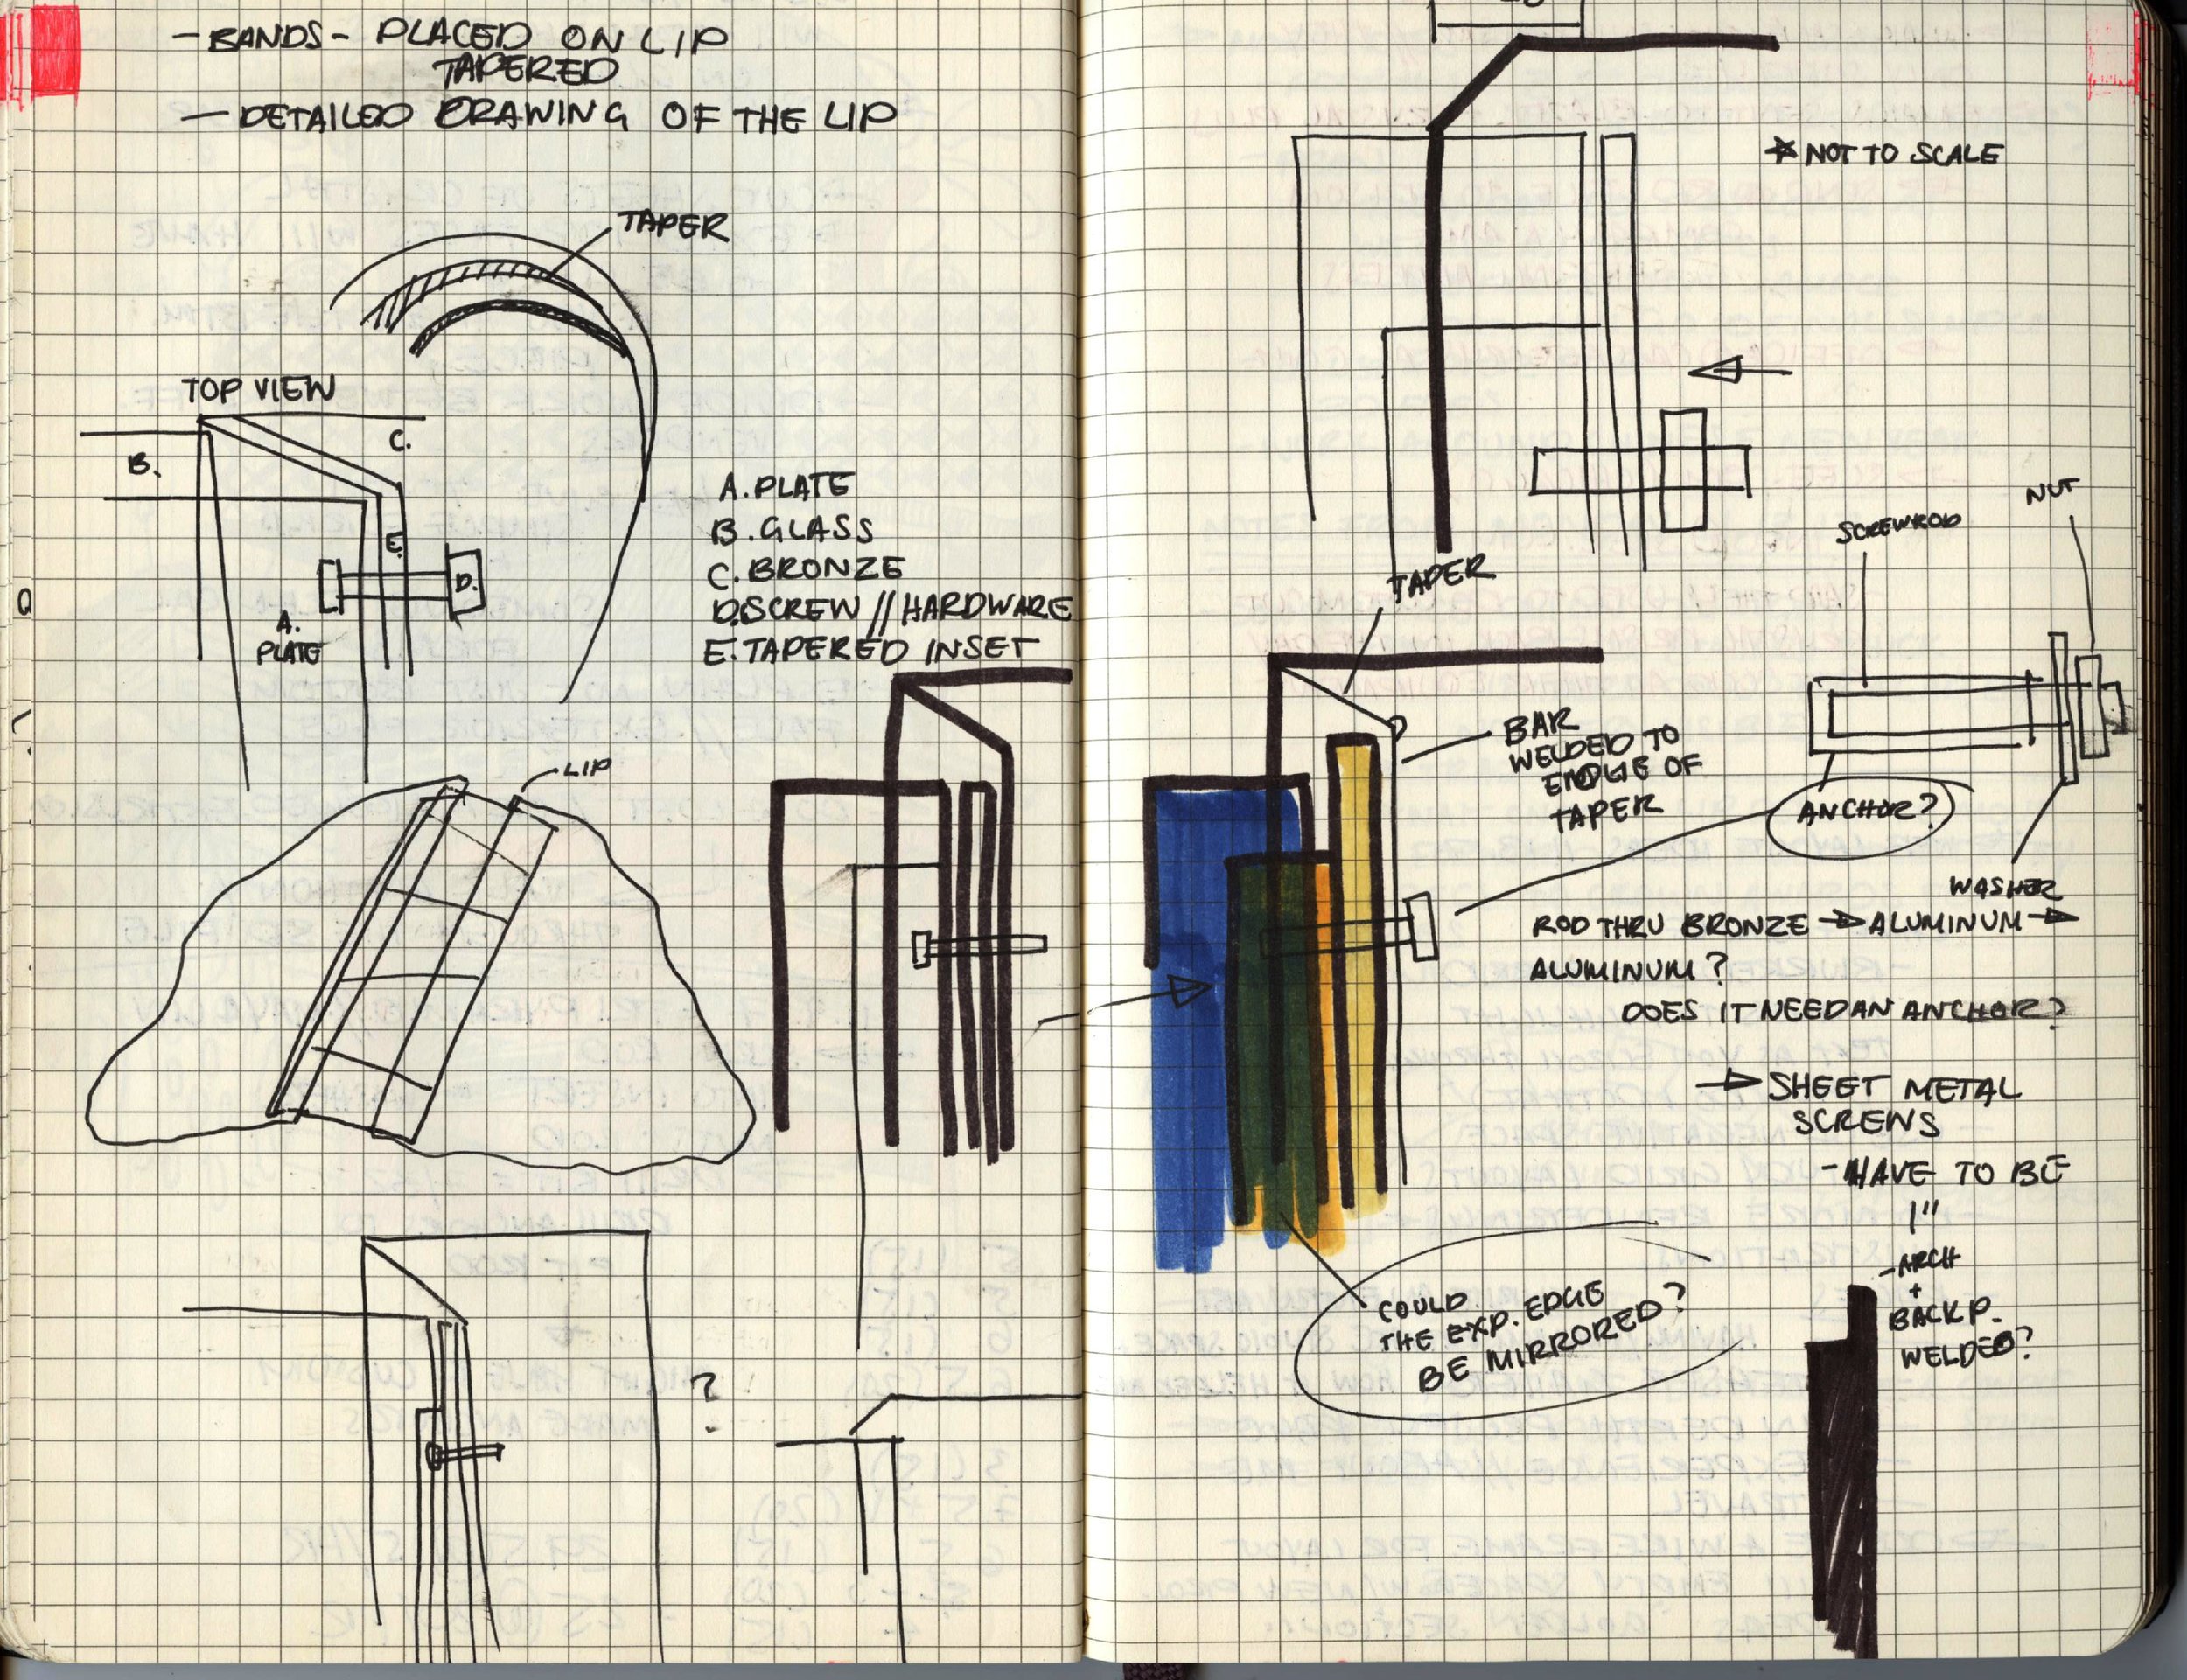 - BANDS - PLACED ON LIP
TAPERED
- DETAILED DRAWING OF THE LIP
TAPER
TOP VIEW
C.
B.
E.
D.
A.
PLATE
A. PLATE
B. GLASS
C. BRONZE
D. SCREW // HARDWARE
E. TAPERED INSET
LIP
?
* NOT TO SCALE
NUT
SCREWROD
TAPER
BAR
WELDED TO
EDGE OF
TAPER
ANCHOR?
WASHER
ROD THRU BRONZE → ALUMINUM →
ALUMINUM?
DOES IT NEED AN ANCHOR?
→ SHEET METAL
SCREWS
- HAVE TO BE
1"
- ARCH
+
BACK P.
WELDED?
COULD
THE EXP. EDGE
BE MIRRORED?